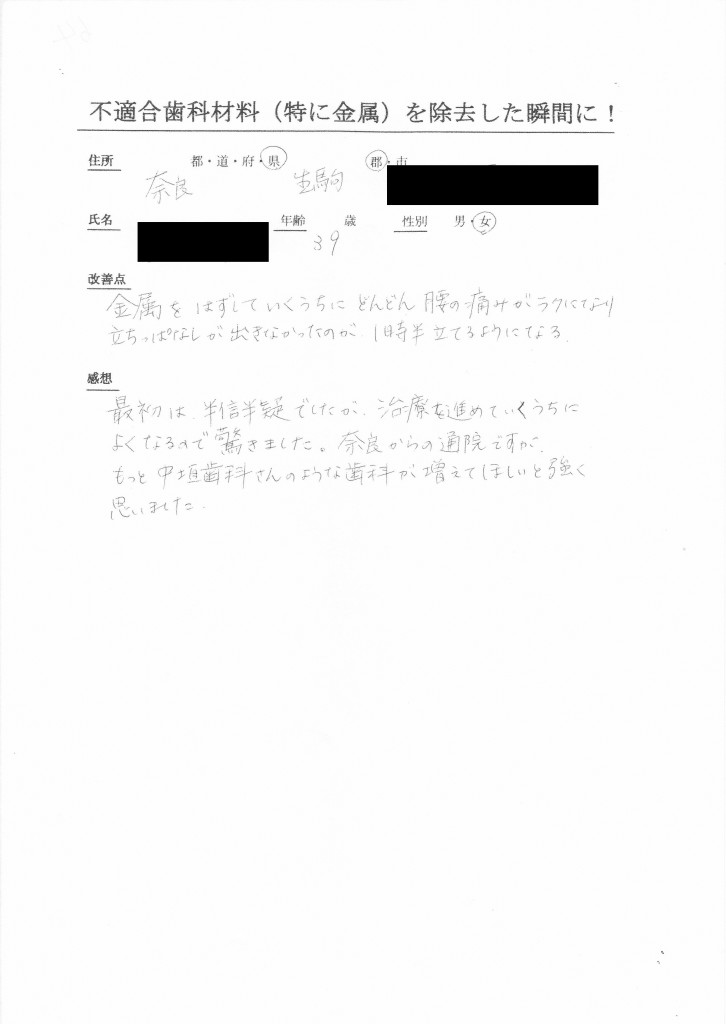 不適合歯科材料（特に金属）を除去した瞬間に！
住所 奈良 都・道・府・県 生駒 郡・市
氏名 年齢 39 歳 性別 男・女
改善点
金属をはずしていくうちにどんどん腰の痛みがラクになり
立ちっぱなしが出きなかったのが、1時半立てるようになる。
感想
最初は、半信半疑でしたが、治療を進めていくうちに
よくなるので驚きました。奈良からの通院ですが、
もっと中垣歯科さんのような歯科が増えてほしいと強く
思いました。